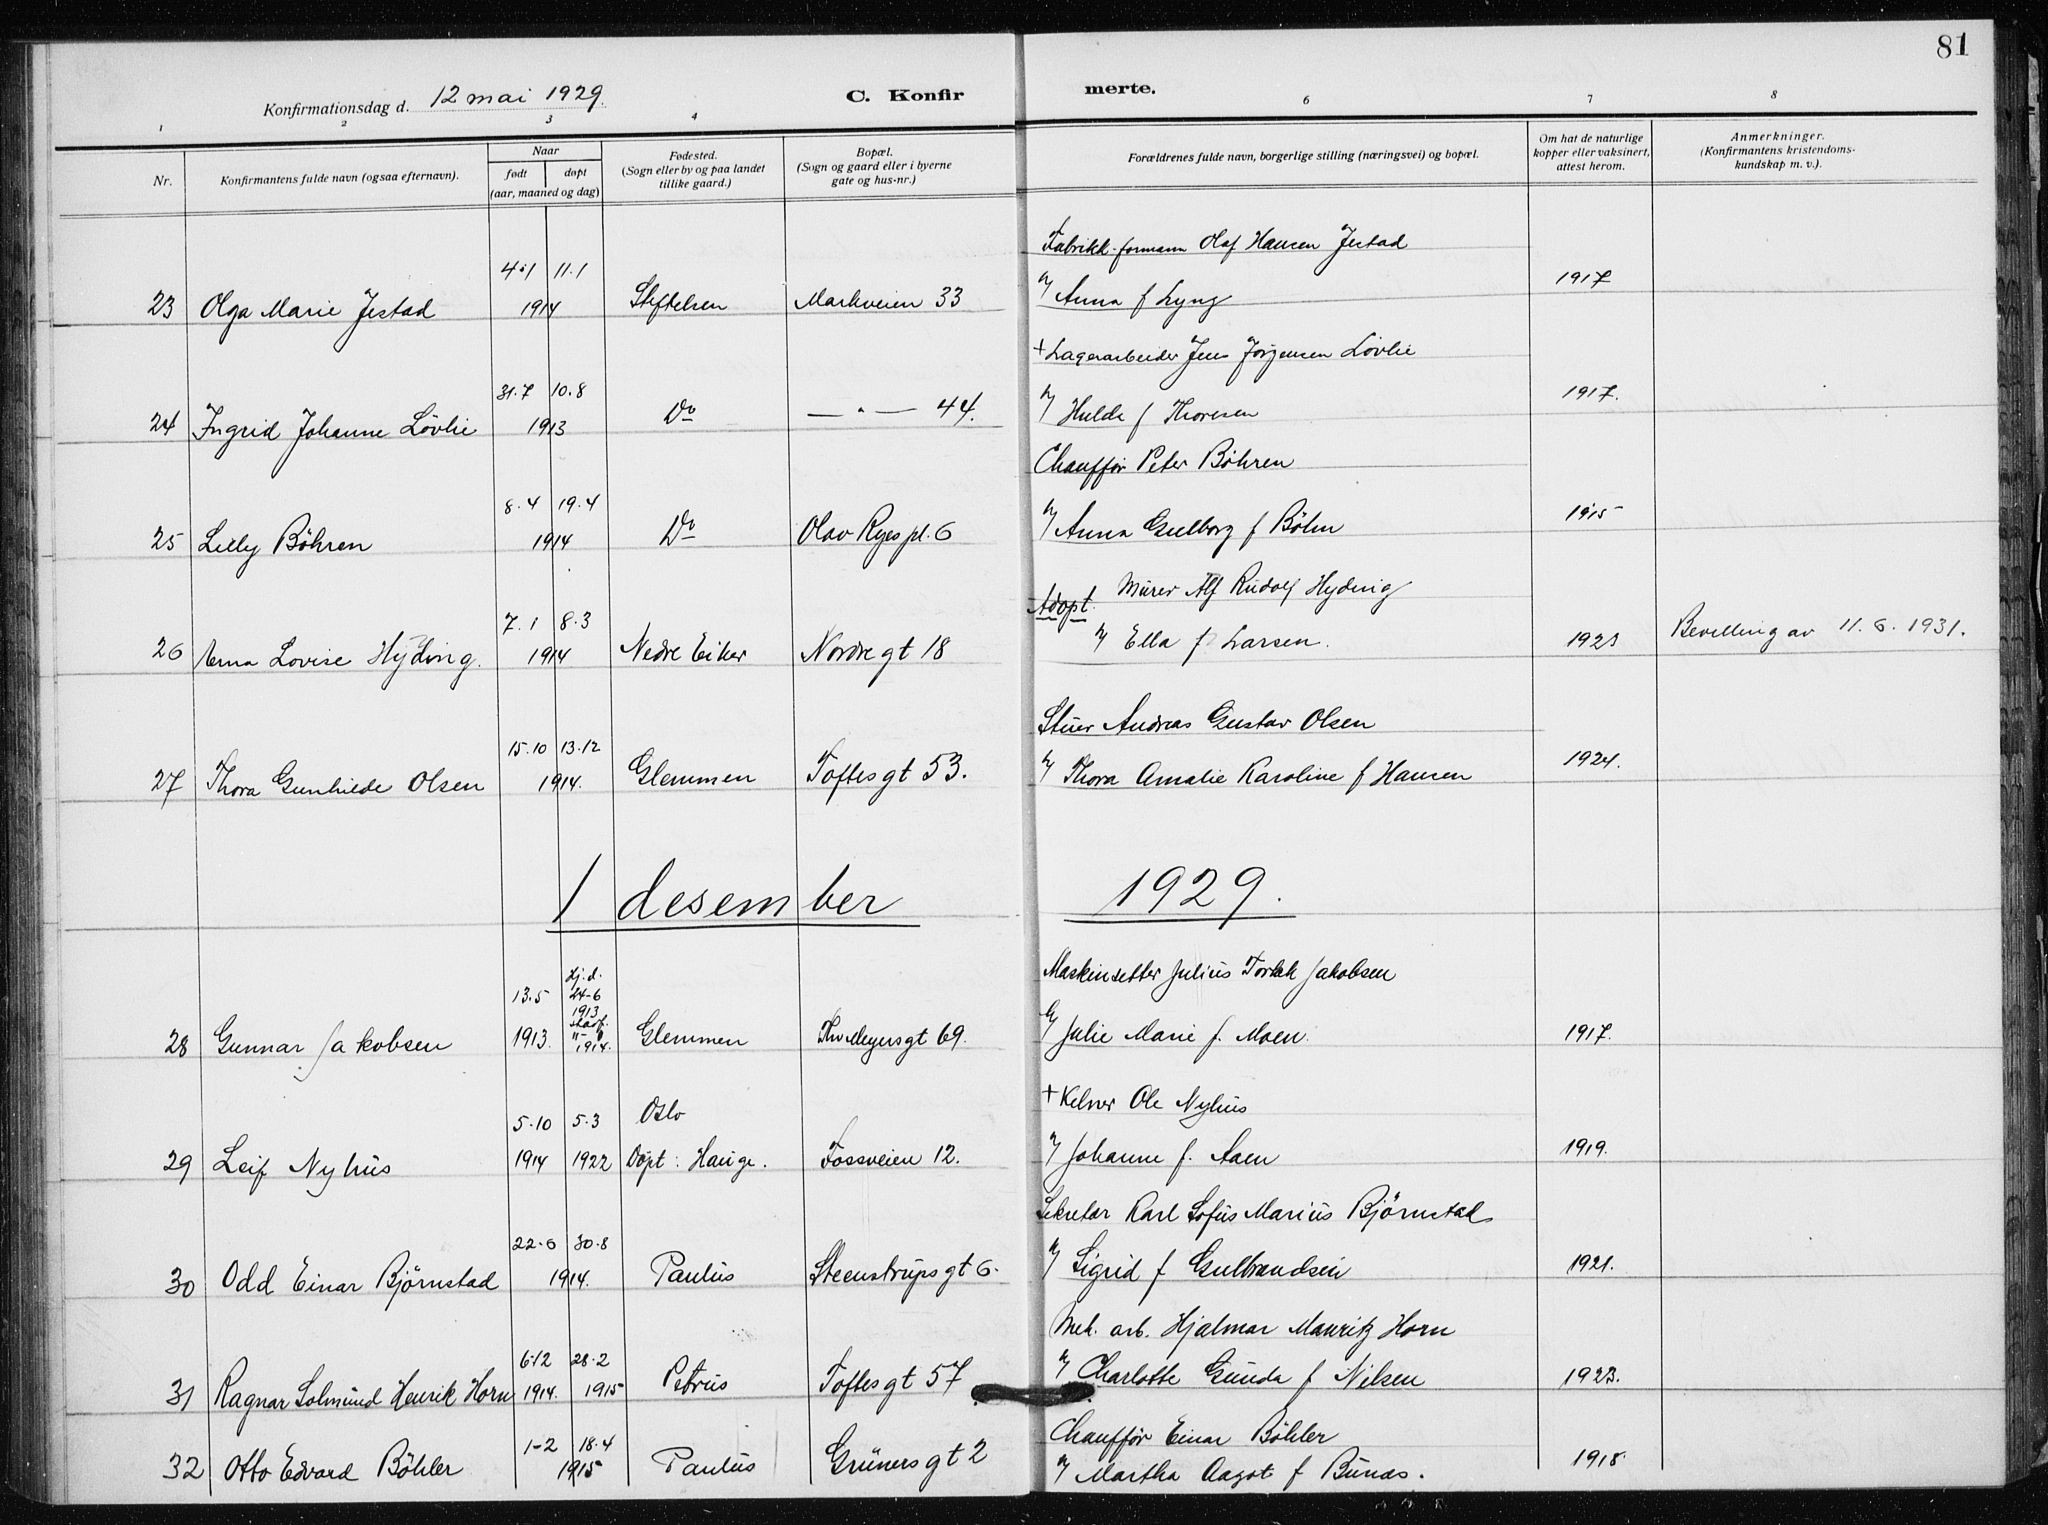 81
Konfirmationsdag d. 12 mai 1929.
C. Konfir merte.
1 2 3 4 6 7 8
Nr.
Konfirmantens fulde navn (ogsaa efternavn).
Naar
født døpt
(aar, maaned og dag)
Fødested.
(Sogn eller by og paa landet
tillike gaard.)
Bopæl.
(Sogn og gaard eller i byerne
gate og hus-nr.)
Forældrenes fulde navn, borgerlige stilling (næringsvei) og bopæl.
Om hat de naturlige
kopper eller vaksinert,
attest herom.
Anmerkninger.
(Konfirmantens kristendoms-
kundskap m. v.).
Fabrikk-formann Olaf Hansen Jestad
4.1 11.1
23 Olga Marie Jestad 1914 Stiftelsen Markveien 33 Anna f Lyng 1917
+ Lagerarbeider Jens Jørgensen Løvlie
31.7 10.8
24 Ingrid Johanne Løvlie 1913 Do — " — 44. Hulda f Thoresen 1917.
Chauffør Peter Bøhren
8.4 19.4
25 Lilly Bøhren 1914 Do Olav Ryes pl. 6 Anna Gulborg f Bøhn 1915
Adopt. Murer Alf Rudolf Hyding
7.1 8.3
26 Erna Lovise Hyding. 1914 Nedre Eiker Nordregt 18 Ella f Larsen. 1923 Bevilling av 11.6.1931.
Stuer Andreas Gustav Olsen
15.10 13.12
27 Thora Gunhilde Olsen 1914. Glemmen Toftesgt 53. Thora Amalie Karoline f Hansen 1924.
1 desember 1929.
Maskinsetter Julius Torleik Jakobsen
13.5 Hj.d. 24-6 1913
28 Gunnar Jakobsen 1913. 1914. Glemmen Thv Meyersgt 69. Julie Marie f. Moen. 1917.
+ Kelner Ole Nyhus
5.10 5.3 Oslo
29 Leif Nyhus 1914 1922 Døpt: Hauge. Fossveien 12. Johanne f. Aaen 1919.
Sekretær Karl Sofus Marius Bjørnstad
22.6 30.8
30 Odd Einar Bjørnstad 1914. Paulus Steenstrupsgt 6. Sigrid f Gulbrandsen 1921.
Mek. arb. Hjalmar Mauritz Horn
6.12 28.2
31 Ragnar Solmund Henrik Horn 1914. 1915 Petrus Toftesgt 57 Charlotte Gunda f Nilsen 1923.
Chauffør Einar Bøhler
1-2 18.4
32 Otto Edvard Bøhler 1915 Paulus Grünersgt 2 Martha Aagot f Bunæs. 1918.